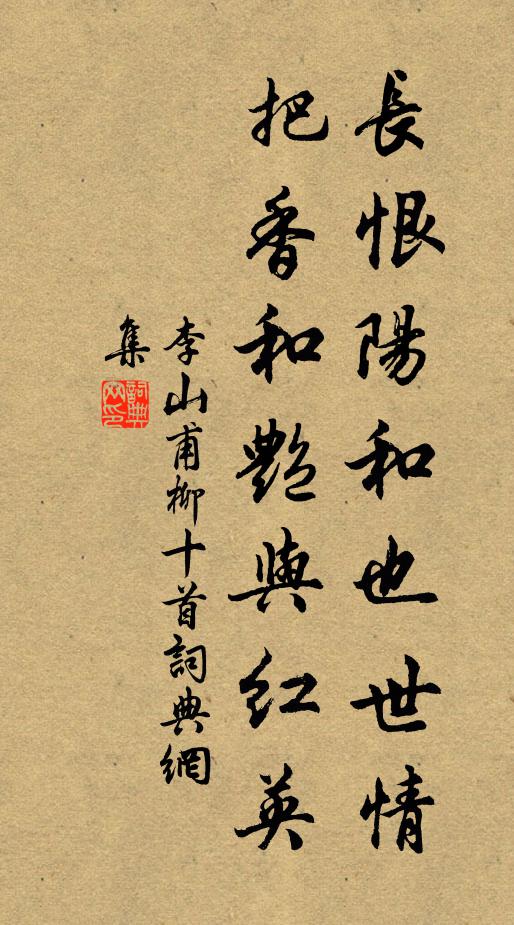 長恨陽和也世情
把香和艷與紅英
李山甫柳十首詞典網
集
詞典
网印